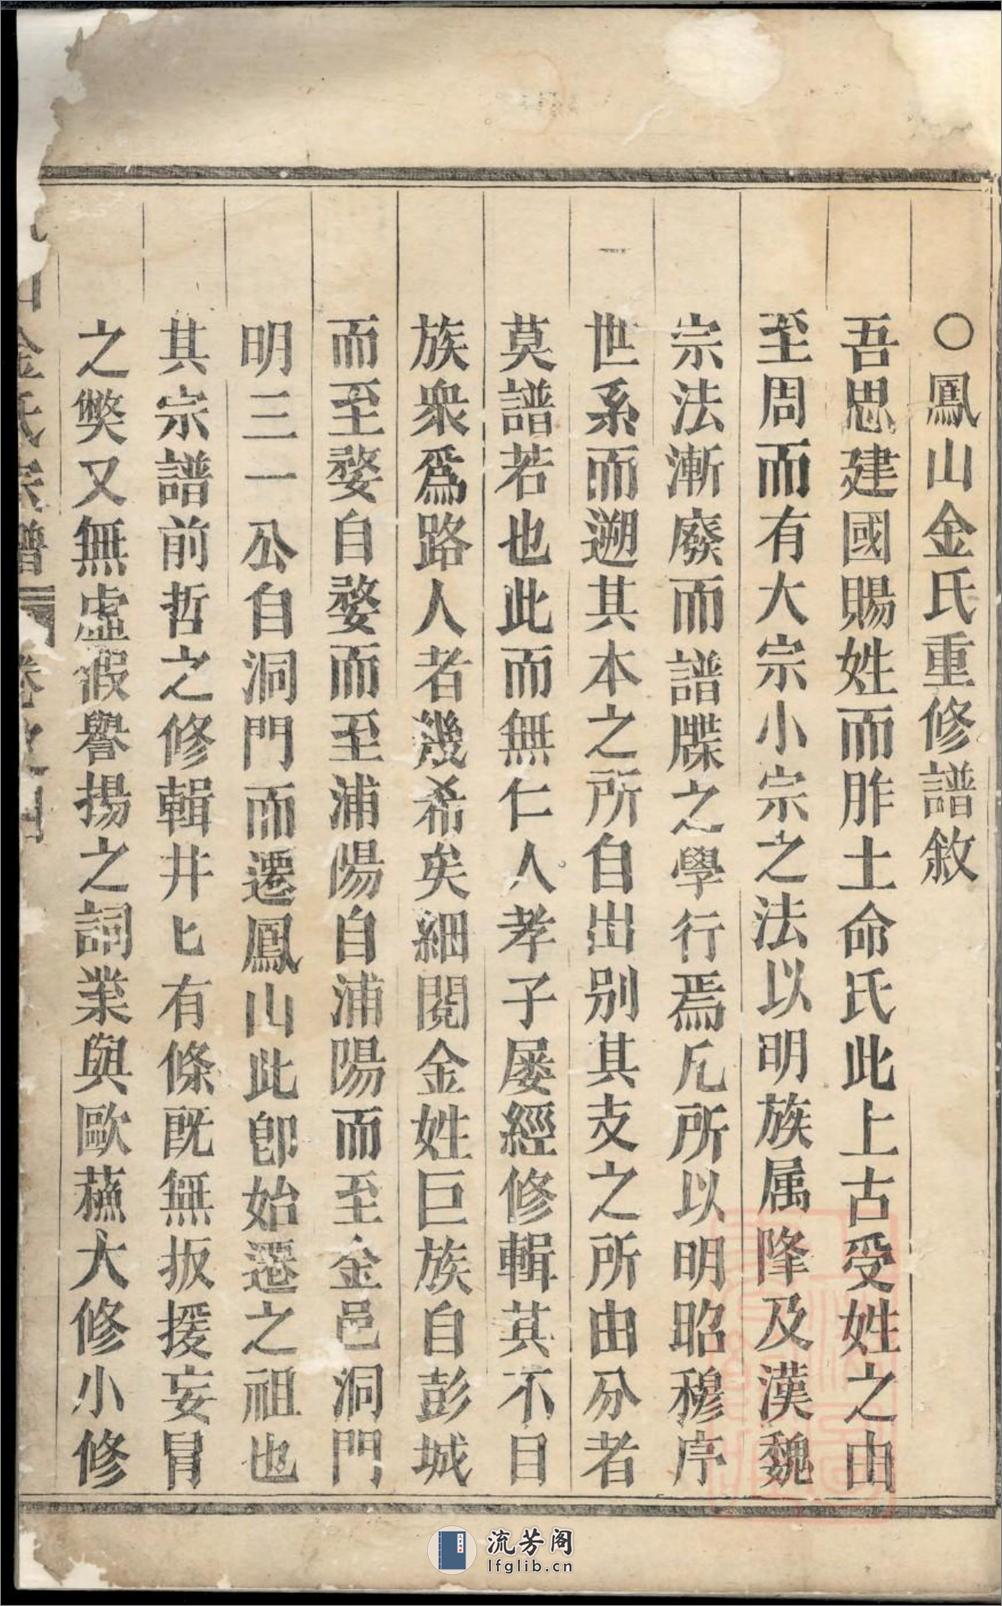 〇鳳山金氏重修譜敘
吾思建國賜姓而胙土命氏此上古受姓之由
至周而有大宗小宗之法以明族属隆及漢魏
宗法漸廢而譜牒之學行焉凢所以明昭穆序
世系而遡其本之所自出别其支之所由分者
莫譜若也此而無仁人孝子屡經修輯其不日
族衆爲路人者幾希矣細閱金姓巨族自彭城
而至婺自婺而至浦陽自浦陽而至金邑洞門
明三一公自洞門而遷鳳山此卽始遷之祖也
其宗譜前哲之修輯井匕有條旣無扳援妄冐
之獘又無虛假譽揚之詞業與歐蘓大修小修
山金氏宗譜 卷之四
流芳阁
lfglib.cn